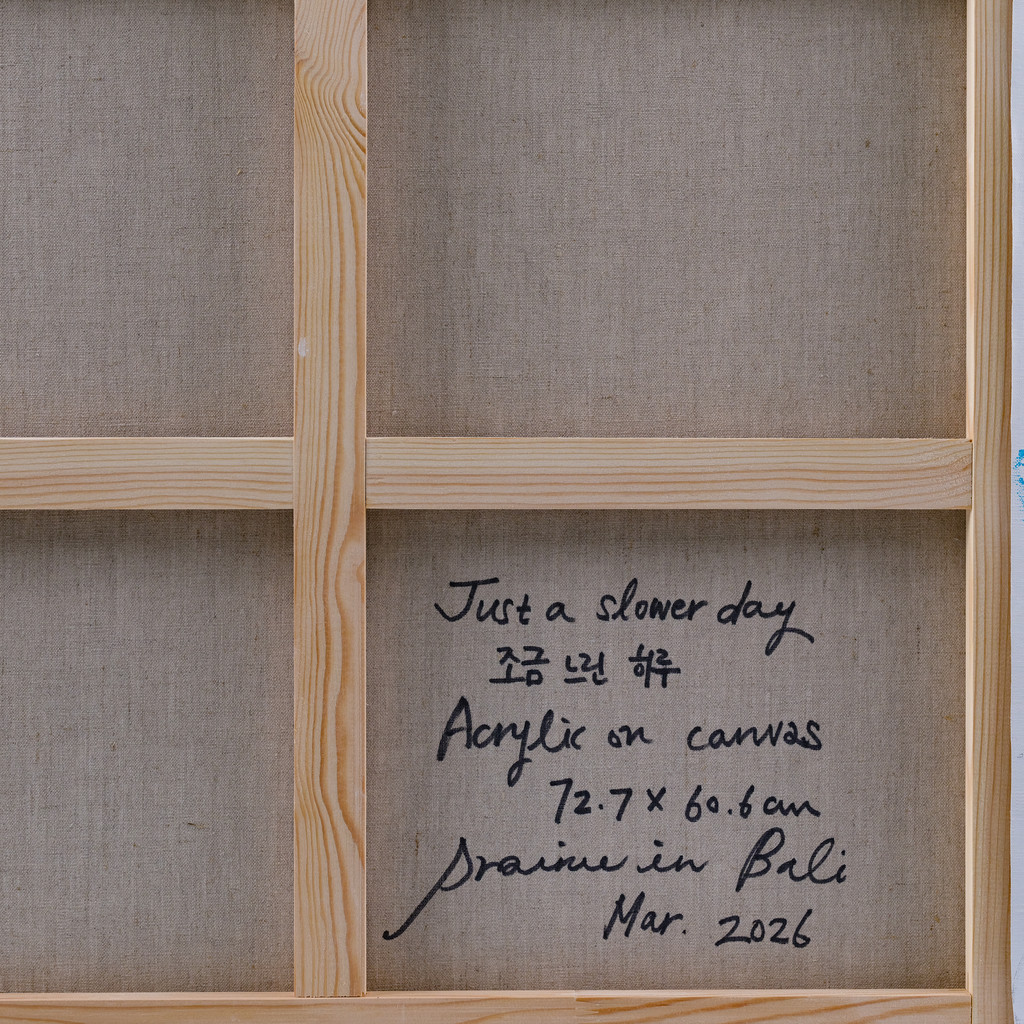 Just a slower day
조금 느린 하루
Acrylic on canvas
72.7 x 60.6 cm
in Bali
Mar. 2026